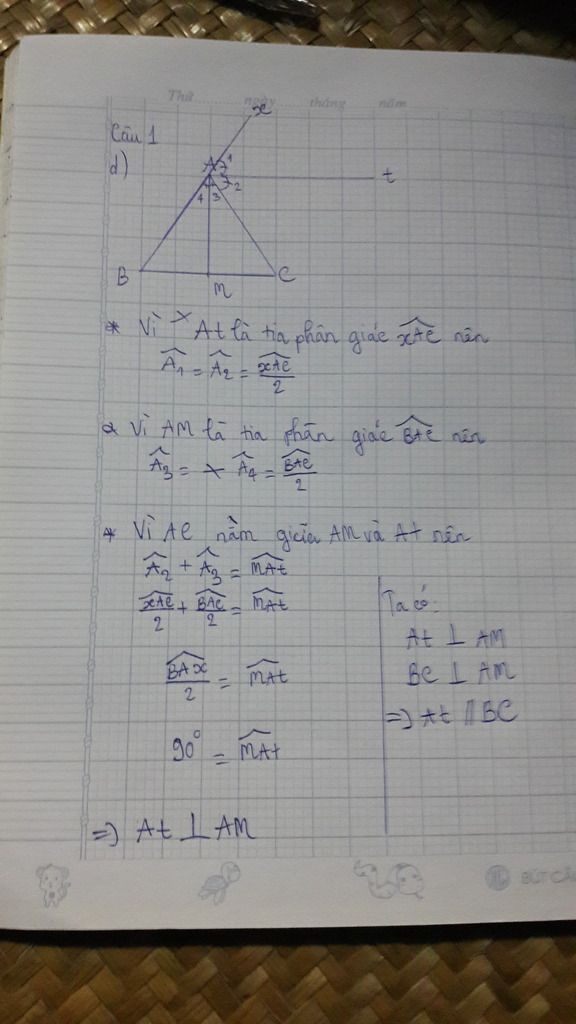 Thứ ........ ngày ..... tháng ..... năm
Câu 1
d)
x
A 1
2
t
4 3
B
M
C
* Vì At là tia phân giác xAC nên
A₁ = A₂ = xAC/2
* Vì AM là tia phân giác BAC nên
A₃ = A₄ = BAC/2
* Vì AC nằm giữa AM và At nên
A₂ + A₃ = MAt
xAC/2 + BAC/2 = MAt
BAx/2 = MAt
90° = MAt
=> At ⊥ AM
Ta có:
At ⊥ AM
BC ⊥ AM
=> At // BC